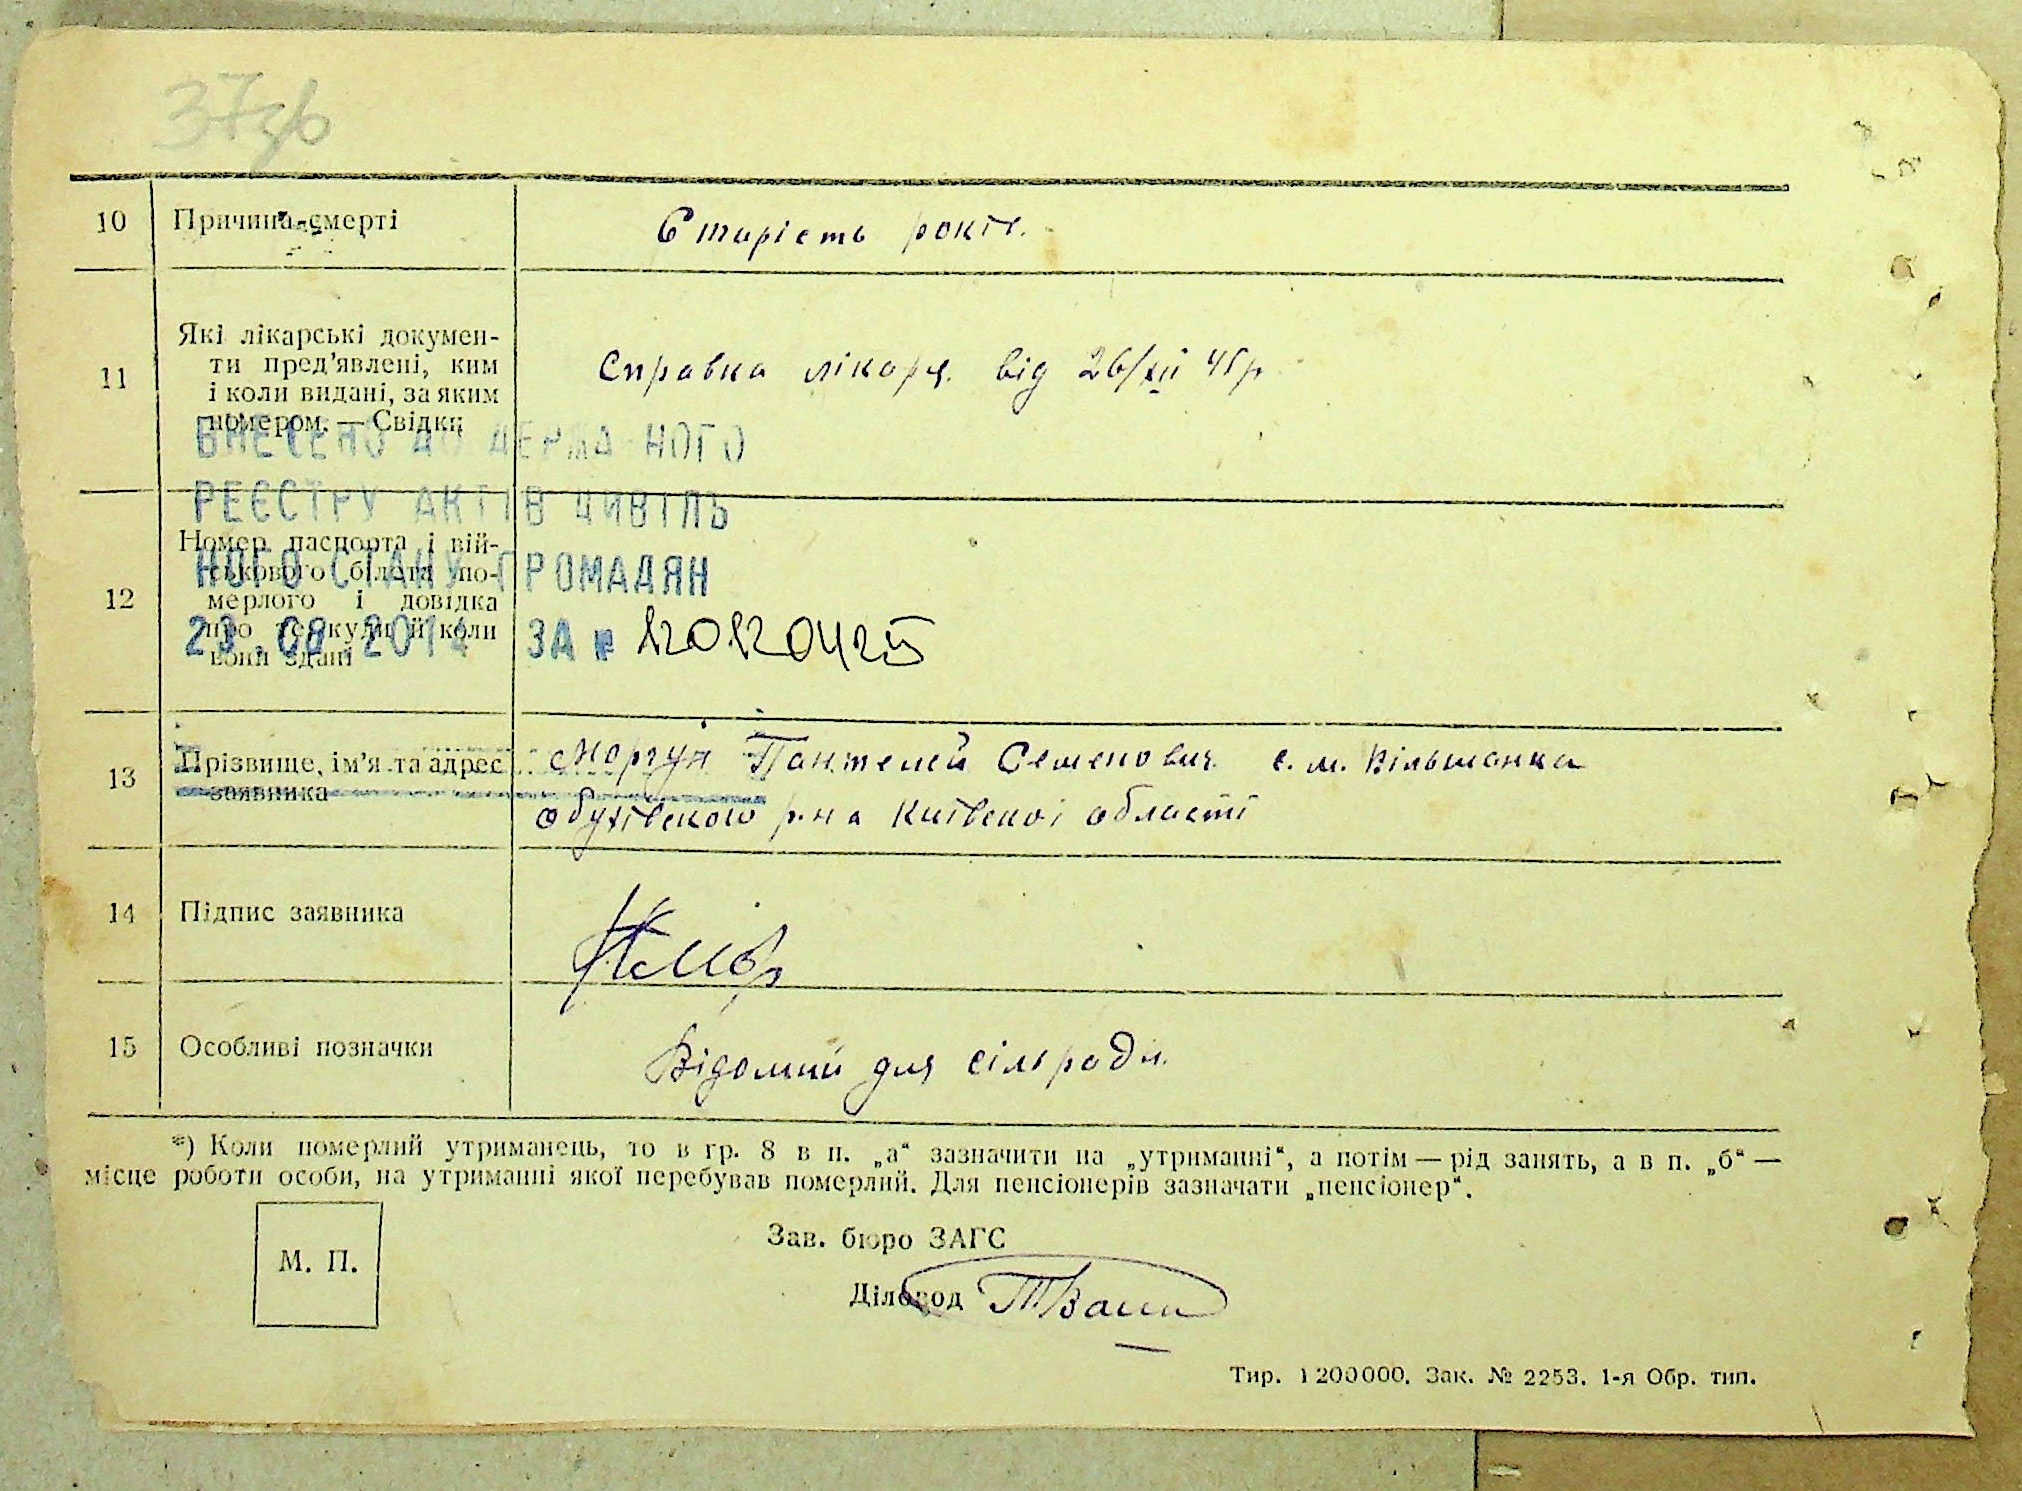 37зв
10 Причина смерті Старість років.
11 Які лікарські докумен-
ти пред'явлені, ким
і коли видані, за яким
номером. — Свідки
Справка лікаря. від 26/XII
ВНЕСЕНО ДО ДЕРЖАВНОГО
РЕЄСТРУ АКТІВ ЦИВІЛЬ
НОГО СТАНУ ГРОМАДЯН
23.08.2014 ЗА №
12 Номер паспорта і вій-
ськового білета по-
мерлого і довідка
про те, куди й коли
вони здані
13 Прізвище, ім'я та адрес
заявника
Моргун Пантелей Семенович с. м. Вільшанка
обухівського р-на Київської області
14 Підпис заявника
15 Особливі позначки Відомий для сільради.
*) Коли померлий утриманець, то в гр. 8 в п. „а“ зазначити на „утриманні“, а потім — рід занять, а в п. „б“ —
місце роботи особи, на утриманні якої перебував померлий. Для пенсіонерів зазначати „пенсіонер“.
М. П.
Зав. бюро ЗАГС
Діловод
Тир. 1 200 000. Зак. № 2253. 1-я Обр. тип.